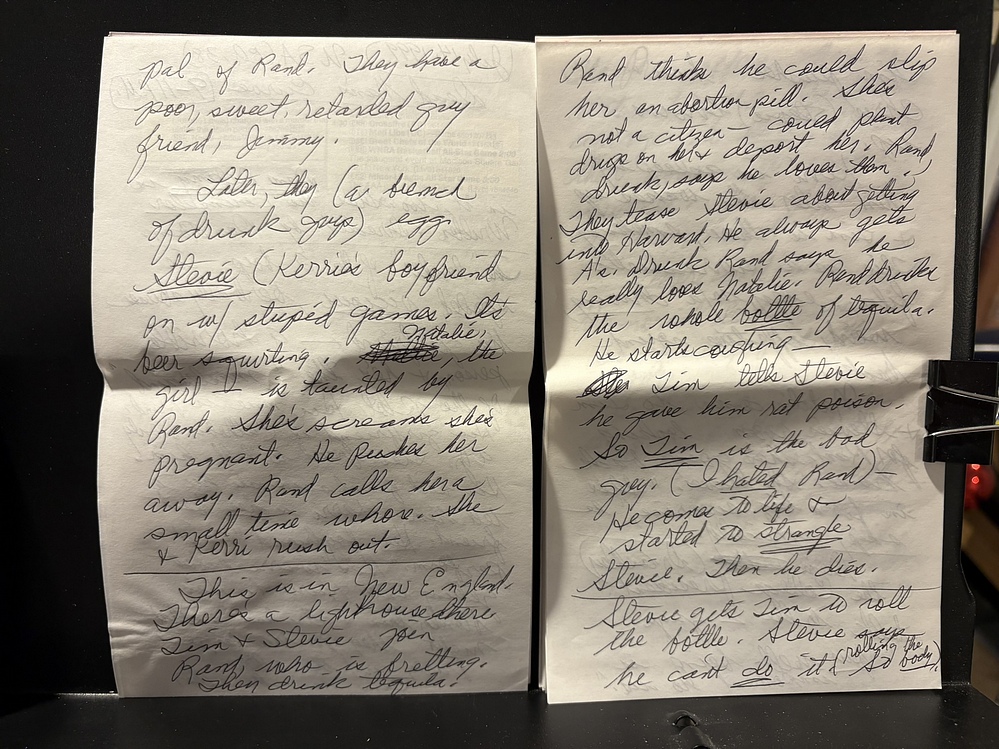 pal of Rand. They have a
poor, sweet, retarded guy
friend, Jimmy.
Later, they (a bunch
of drunk guys) egg
Stevie (Kerrie's boyfriend
on w/ stupid games. It's
Natalie,
beer squirting. the
girl — is taunted by
Rand. She's screams she's
pregnant. He pushes her
away. Rand calls her a
small time whore. She
& Kerri rush out.
This is in New England.
There's a lighthouse there
Tim & Stevie join
Rand, who is fretting.
They drink tequila.
Rand thinks he could slip
her an abortion pill. She's
not a citizen — could plant
drugs on her & deport her. Rand,
drunk, says he loves them.
They tease Stevie about getting
into Harvard. He always gets
A's. Drunk Rand says he
really loves Natalie. Rand drinks
the whole bottle of tequila.
He starts coughing —
Tim tells Stevie
he gave him rat poison.
So Tim is the bad
guy. (I hated Rand) —
He comes to life &
started to strangle
Stevie. Then he dies.
Stevie gets Tim to roll
the bottle. Stevie says
he can't do it (rolling the
So body).